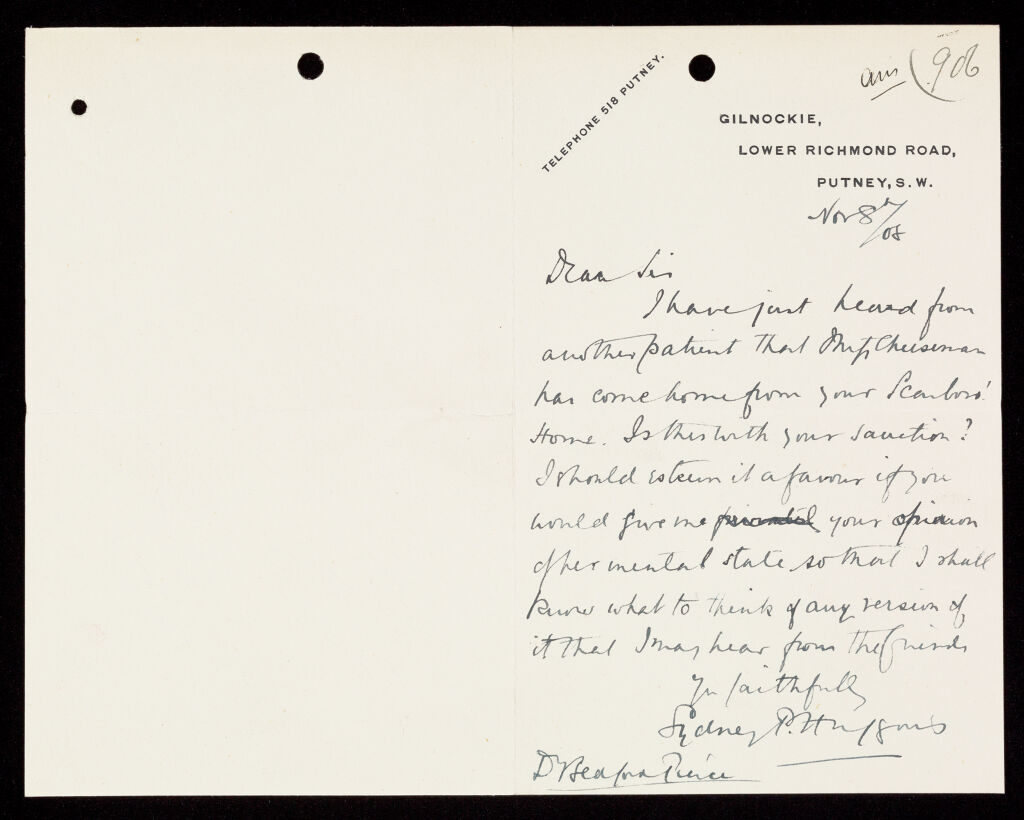 ans (906
TELEPHONE 518 PUTNEY.
GILNOCKIE,
LOWER RICHMOND ROAD,
PUTNEY, S.W.
Nov 8th/08
Dear Sir
I have just heard from
another patient that Miss Cheeseman
has come home from your Scarboro'
Home. Is this with your sanction?
I should esteem it a favour if you
would give me your opinion
of her mental state, so that I shall
know what to think of any version of
it that I may hear from the friends
Yrs faithfully
Sydney P. Huggins
Dr Bedford Pierce